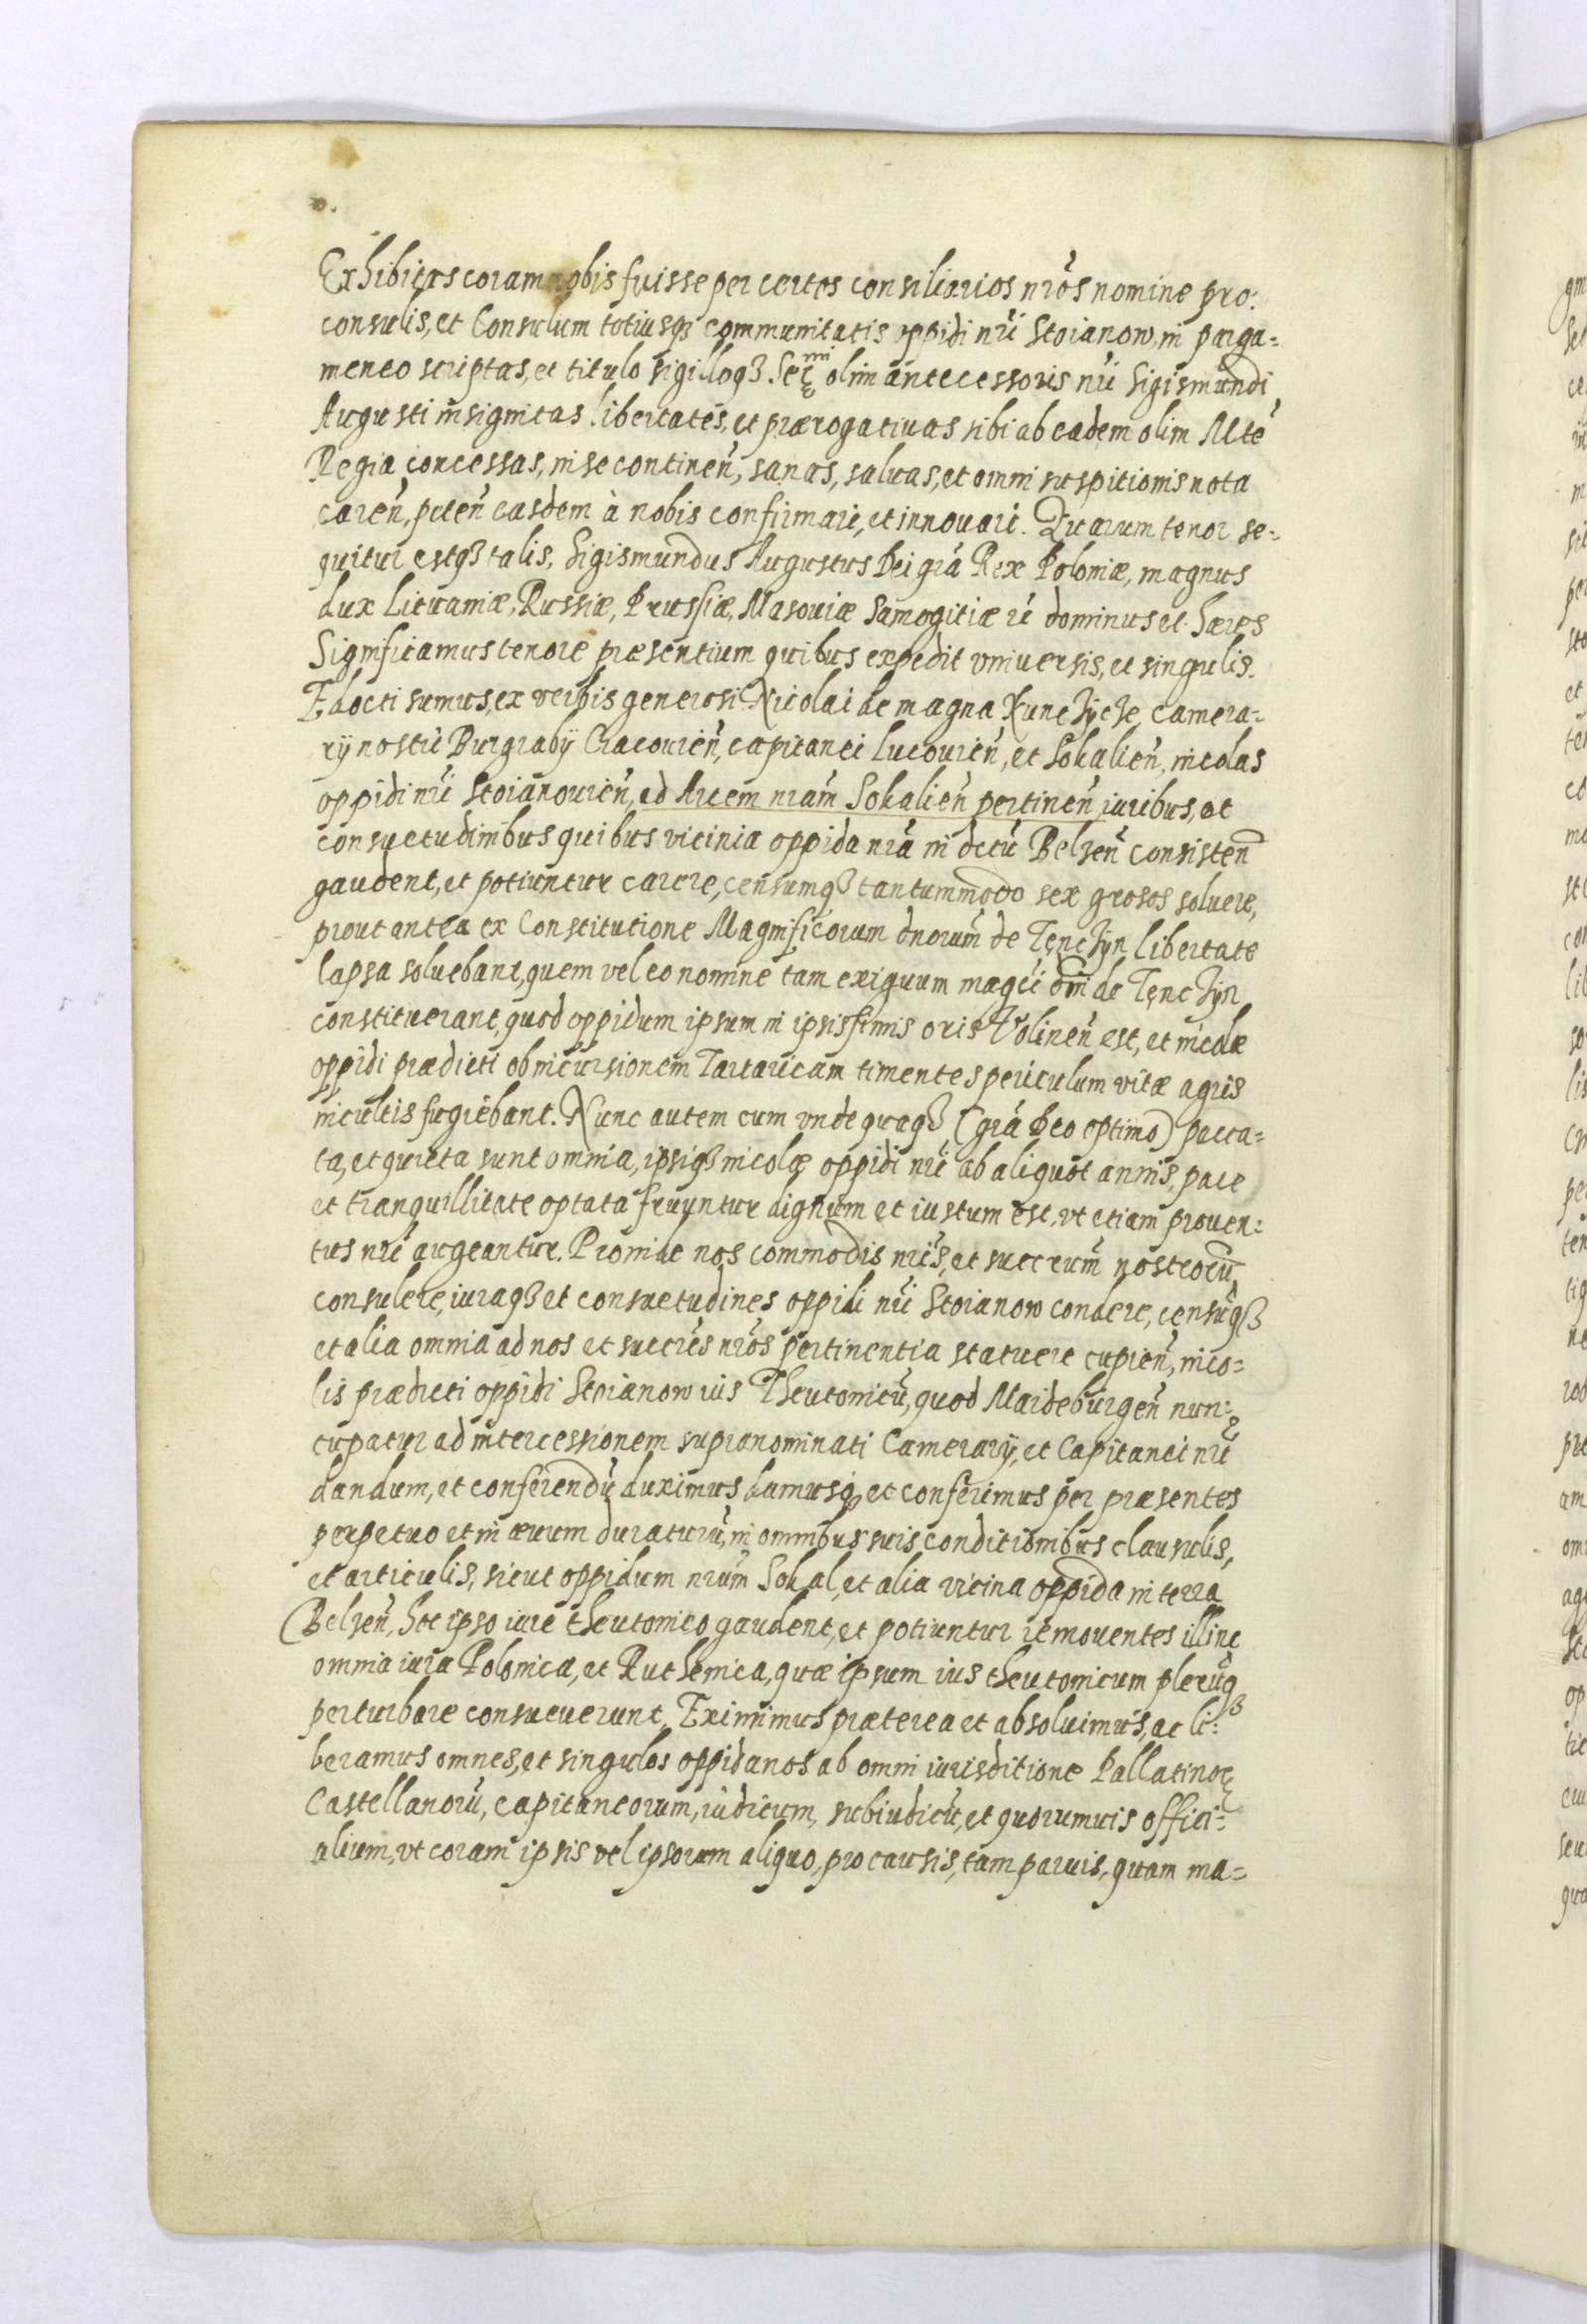 Exhibitas coram nobis fuisse per certos consiliarios nrōs nomine pro:
consulis, et Consulum totiusqȝ communitatis oppidi nrī Stoianow, in parga=
meneo scriptas, et titulo sigilloqȝ Ser mi olim antecessoris nrī Sigismundi
Augusti insignitas libertates, et prærogatiuas sibi ab eadem olim Mte
Regia concessas, in se continen̄, sanas, saluas, et omni suspitionis nota
caren̄, peten̄ easdem à nobis confirmari, et innouari. Quarum tenor se=
quitur estqȝ talis, Sigismundus Augustus Dei grā Rex Poloniæ, magnus
dux Lituaniæ, Russiæ, Prussiæ, Masouiæ Samogitiæ dominus et hæres
Significamus tenore præsentium quibus expedit vniuersis, et singulis.
Edocti sumus, ex verbis generosi Nicolai de magna Kunczycze camera=
rij nostri Burgrabij Cracouien̄, capitanei Lucouien̄, et Sokalien̄, incolas
oppidi nrī Stoianouien̄, ad Arcem nram̄ Sokalien̄ pertinen̄ iuribus, et
consuetudinibus quibus vicinia oppida nrā in dctū Belzen̄ consisten̄
gaudent, et potiuntur carere, censumqȝ tantummodo sex grosos soluere,
prout antea ex Constitutione Magnificorum dnorum̄ de Tęnczyn libertate
lapsa soluebant, quem vel eo nomine tam exiguum magci dni de Tęnczyn
constituerant, quod oppidum ipsum in ipsissimis oris Volinen̄ est, et incolæ
oppidi prædicti ob incursionem Tartaricam timentes periculum vitæ agris
incultis fugiebant. Nunc autem cum vndequaqȝ (grā Deo optimo) pacca=
ta, et quieta sunt omnia, ipsiqȝ incolæ oppidi nrī ab aliquot annis, pace
et tranquillitate optata fruuntur dignum et iustum est, vt etiam prouen=
tus nrī augeantur. Proinde nos commodis nrīs, et succrum̄ nostrorū
consulere, iuraqȝ et consuetudines oppidi nrī Stoianow condere, censūqȝ
et alia omnia ad nos et succrēs nrōs pertinentia statuere cupien̄, inco=
lis prædicti oppidi Stoianow ius Theutonicū, quod Maideburgen̄ nun=
cupatur ad intercessionem supranominati Camerarij, et Capitanei nrī
dandum, et conferendū duximus damusq et conferimus per præsentes
perpetuo et in æuum duraturū, in omnibus suis conditionibus clausulis,
et articulis, sicut oppidum nrum̄ Sokal, et alia vicina oppida in terra
Belzen̄, hoc ipso iure theutonico gaudent, et potiuntur remouentes illinc
omnia iura Polonica, et Ruthenica, quæ ipsum ius theutonicum plerūqȝ
perturbare consueuerunt, Eximimus præterea et absoluimus, ac li=
beramus omnes, et singulos oppidanos ab omni iurisditione Pallatinoꝝ
Castellanorū, capitaneorum, iudicum, subiudicū, et quorumuis offici=
alium, vt coram ipsis vel ipsorum aliquo, pro causis, tam paruis, quam ma=